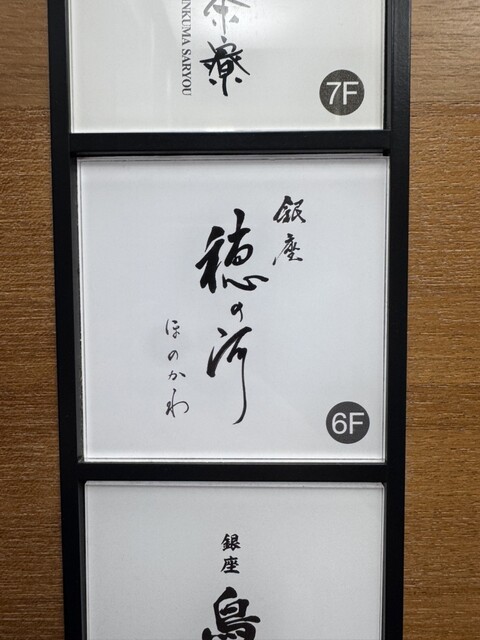 茶寮
INKUMA SARYOU
7F
銀座
穂の河
ほのかわ
6F
銀座
鳥